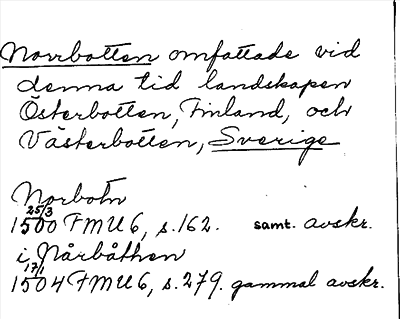 Norrbotten omfattade vid
denna tid landskapen
Österbotten, Finland, och
Västerbotten, Sverige
Norbotn
1500 25/3 FMU 6, s. 162. samt. avskr.
i Nårbåthen
1504 17/1 FMU 6, s. 279. gammal avskr.